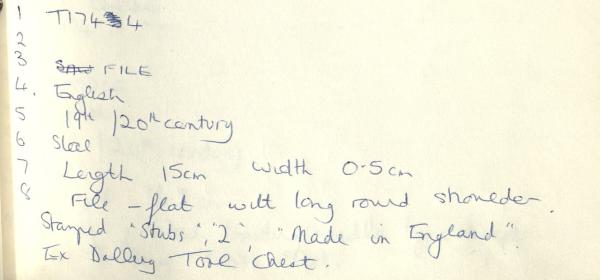 1 T1744
2
3 FILE
4. English
5 19th / 20th century
6 Steel
7 Length 15cm width 0.5cm
8 File - flat with long round shoulder.
Stamped "Stubs", "2" "Made in England".
Ex Tool Chest.